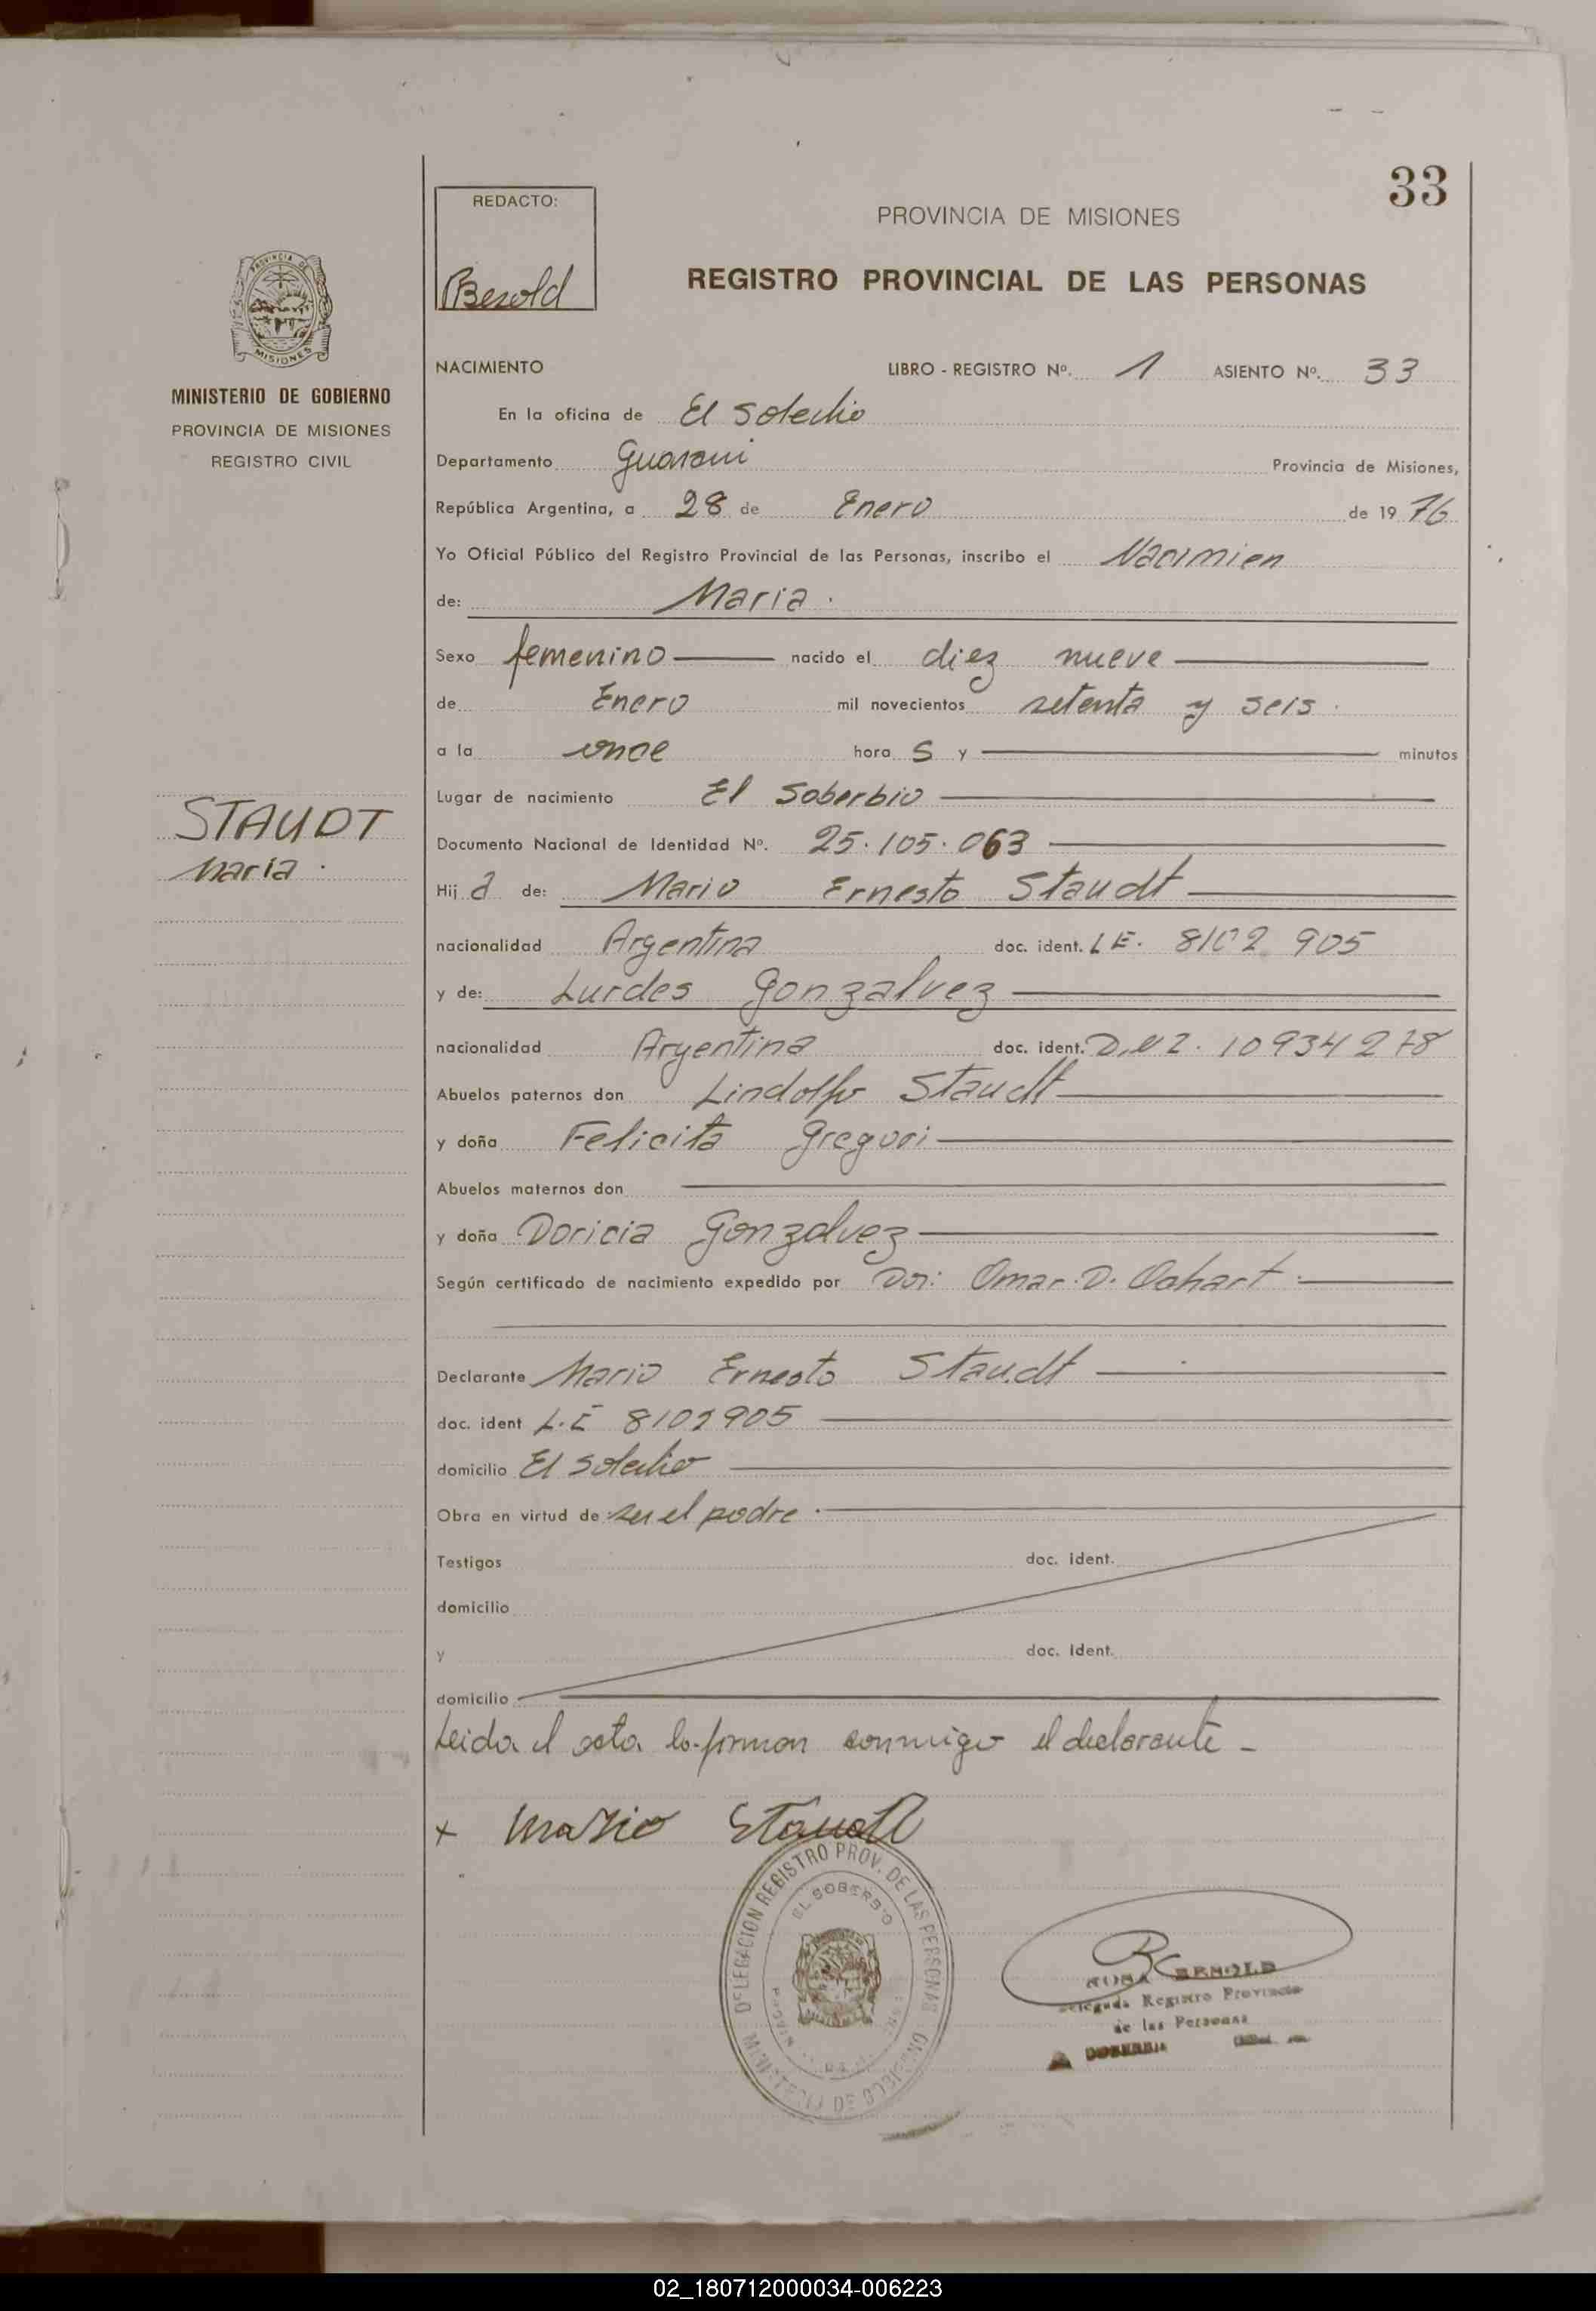 33
REDACTO:
PROVINCIA DE MISIONES
REGISTRO PROVINCIAL DE LAS PERSONAS
PROVINCIA DE
MISIONES
MINISTERIO DE GOBIERNO
PROVINCIA DE MISIONES
REGISTRO CIVIL
NACIMIENTO LIBRO - REGISTRO Nº. 1 ASIENTO Nº. 33
En la oficina de El Soberbio
Departamento Guarani Provincia de Misiones,
República Argentina, a 28 de Enero de 19 76
Yo Oficial Público del Registro Provincial de las Personas, inscribo el Nacimien
de: Maria.
Sexo femenino nacido el diez nueve
de Enero mil novecientos setenta y seis.
a la once hora s y minutos
Lugar de nacimiento El Soberbio
STAUDT
Maria.
Documento Nacional de Identidad Nº. 25.105.063
Hij a de: Mario Ernesto Staudt
nacionalidad Argentina doc. ident. LE. 8102 905
y de: Lurdes Gonzalvez
nacionalidad Argentina doc. ident. 10934278
Abuelos paternos don Lindolfo Staudt
y doña Felicita Gregori
Abuelos maternos don
y doña Doricia Gonzalvez
Según certificado de nacimiento expedido por Omar D.
Declarante Mario Ernesto Staudt
doc. ident L.E 8102905
domicilio El Soberbio
Obra en virtud de: ser el padre.
Testigos doc. ident.
domicilio
y doc. ident.
domicilio
Leida el acta la firman conmigo el declarante -
x Mario Staudt
DELEGACION REGISTRO PROV. DE LAS PERSONAS
EL SOBERBIO
Delegada Registro Provincia
de las Personas
02_180712000034-006223